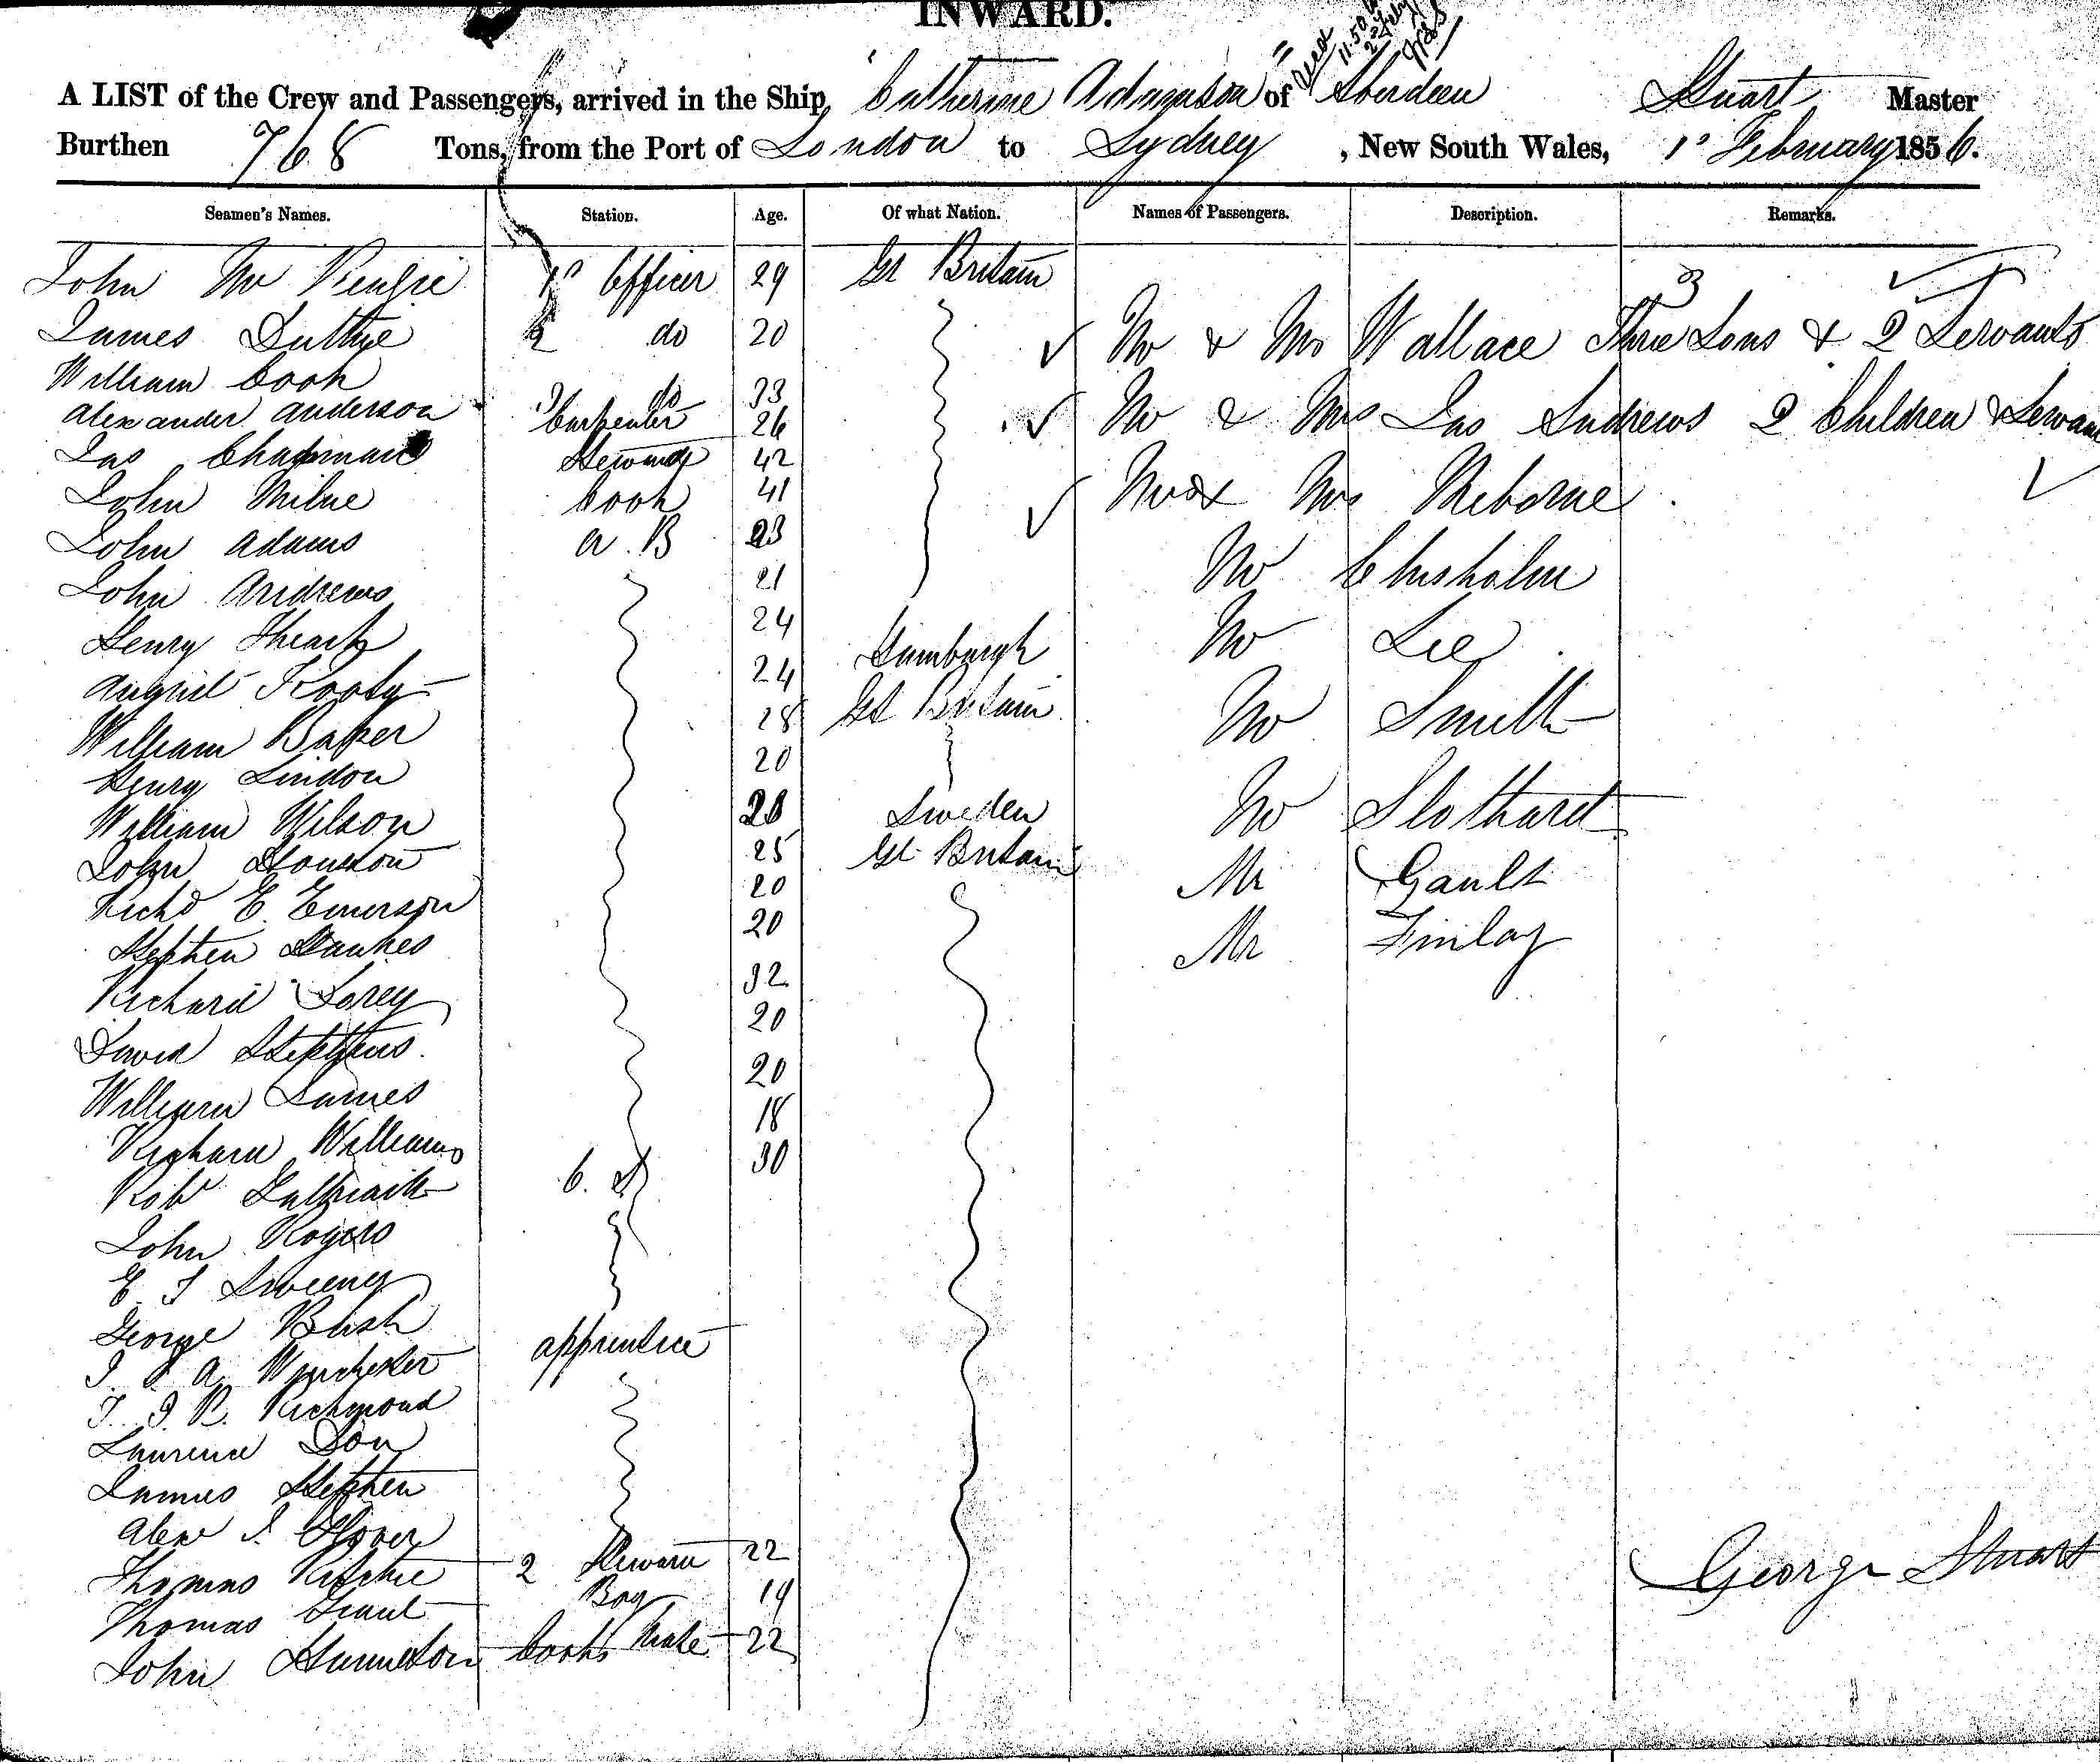 INWARD.
A LIST of the Crew and Passengers, arrived in the Ship "Catherine Adamson" of Aberdeen Stuart Master
Burthen 768 Tons, from the Port of London to Sydney, New South Wales, 1st February 1856.
Seamen's Names. Station. Age. Of what Nation. Names of Passengers. Description. Remarks.
John McKenzie 1st Officer 29 Gt Britain
James Duthie 2 do 20 Mr & Mrs Wallace Three Sons & 2 Servants
William Cook 3 do 33
Alexander Anderson Carpenter 26 Mr & Mrs Jas Andrews 2 Children & Servant
Jas Chapman Steward 42
John Milne Cook 41 Mr & Mrs
John Adams A.B 23
John Andrews 21 Mr Chisholm
Henry 24
August 24 Hamburgh Mr Lee
William Baker 28 Gt Britain Mr Smith
Henry Lindon 20
William Wilson 28 Sweden Mr Slothard
John 25 Gt Britain
Richd E. Emerson 20 Mr Gault
Stephen Hawkes 20 Mr Finlay
Richard Sorey 32
David Stephens 20
William James 20
Richard Williams 18
Robt Galbraith O.S 30
John Rogers
E. J Sweeney
George Bush
J. A. Winchester apprentice
T. J. R. Richmond
Laurence Don
James Stephen
Alexr J. Glover
Thomas Ritchie 2 Steward 22
Thomas Grant Boy 19
John Cooks Mate 22
George Stuart